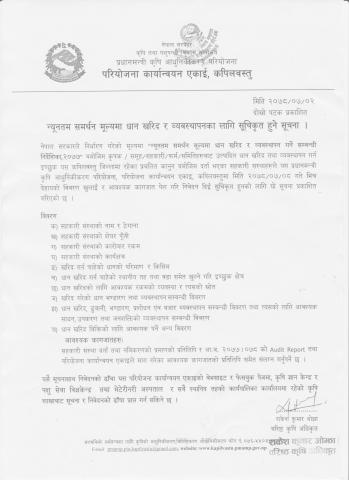 नेपाल सरकार
कृषि तथा पशुपन्छी विकास मन्त्रालय
प्रधानमन्त्री कृषि आधुनिकीकरण परियोजना
परियोजना कार्यान्वयन एकाई, कपिलवस्तु
मिति २०७८/०७/०२
दोस्रो पटक प्रकाशित
न्यूनतम समर्थन मूल्यमा धान खरिद र व्यवस्थापनका लागि सूचिकृत हुने सूचना ।
नेपाल सरकारले निर्धारण गरेको मूल्यमा "न्यूनतम समर्थन मूल्यमा धान खरिद र व्यवस्थापन गर्ने सम्बन्धी
निर्देशिका,२०७७" बमोजिम कृषक / समूह/सहकारी/फार्म/समितिहरुबाट उत्पादित धान खरिद तथा व्यवस्थापन गर्न
इच्छुक यस कपिलवस्तु जिल्लामा रहेका प्रचलित कानुन बमोजिम दर्ता भएका सहकारी संस्थाहरुले यस प्रधानमन्त्री
कृषि आधुनिकीकरण परियोजना, परियोजना कार्यान्वयन एकाई, कपिलवस्तुमा मिति २०७८/०७/०८ गते भित्र
देहायको विवरण खुलाई र आवश्यक कागजात पेश गरि निवेदन दिई सूचिकृत हुनको लागि यो सूचना प्रकाशित
गरिएको छ ।
विवरण
क) सहकारी संस्थाको नाम र ठेगाना
ख) सहकारी संस्थाको शेयर पूँजी
ग) सहकारी संस्थाको कारोबार रकम
घ) सहकारी संस्थाको कार्यक्षेत्र
ङ) खरिद गर्न चाहेको धानको परिमाण र किसिम
च) धान खरिद गर्न चाहेको स्थानीय तह तथा वडा समेत खुल्ने गरि इच्छुक क्षेत्र
छ) धान खरिदको लागि आवश्यक रकमको व्यवस्था र त्यसको स्रोत
ज) खरिद गरेको धान भण्डारण तथा व्यवस्थापन सम्बन्धी विवरण
झ) धान खरिद, ढुवानी, भण्डारण, प्रशोधन एवं बजार व्यवस्थापन सम्बन्धी विवरण तथा त्यसको लागि आवश्यक
साधन, उपकरण तथा जनशक्तिको व्यवस्थापनको विवरण
ञ) धान खरिद बिक्रिको लागि आवश्यक पर्ने अन्य विवरण
आवश्यक कागजातहरु:
सहकारी संस्था दर्ता तथा नविकरणको प्रमाणको प्रतिलिपि र आ.व. २०७७/०७८ को Audit Report तथा
परियोजना कार्यान्वयन एकाइले माग गरेका आवश्यक कागजातको प्रतिलिपि समेत संलग्न गर्नुपर्ने छ ।
पर्सै सूचनासाथ निवेदनको ढाँचा यस परियोजना कार्यान्वयन एकाइको वेबसाइट र फेसबुक पेजमा, कृषि ज्ञान केन्द्र र
पशु सेवा विज्ञकेन्द्र तथा भेटेरीनरी अस्पताल र सबै स्थानिय तहको कार्यपालिका कार्यालयमा रहेको कृषि
शाखाबाट सूचना र निवेदनको ढाँचा प्राप्त गर्न सकिने छ ।
राकेश कुमार ओझा
वरिष्ठ कृषि अधिकृत
राकेश कुमार ओझा
वरिष्ठ कृषि अधिकृत